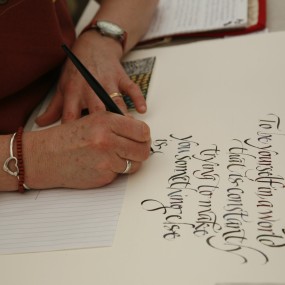 To be yourself in a world
that is constantly
trying to make
you something else
is